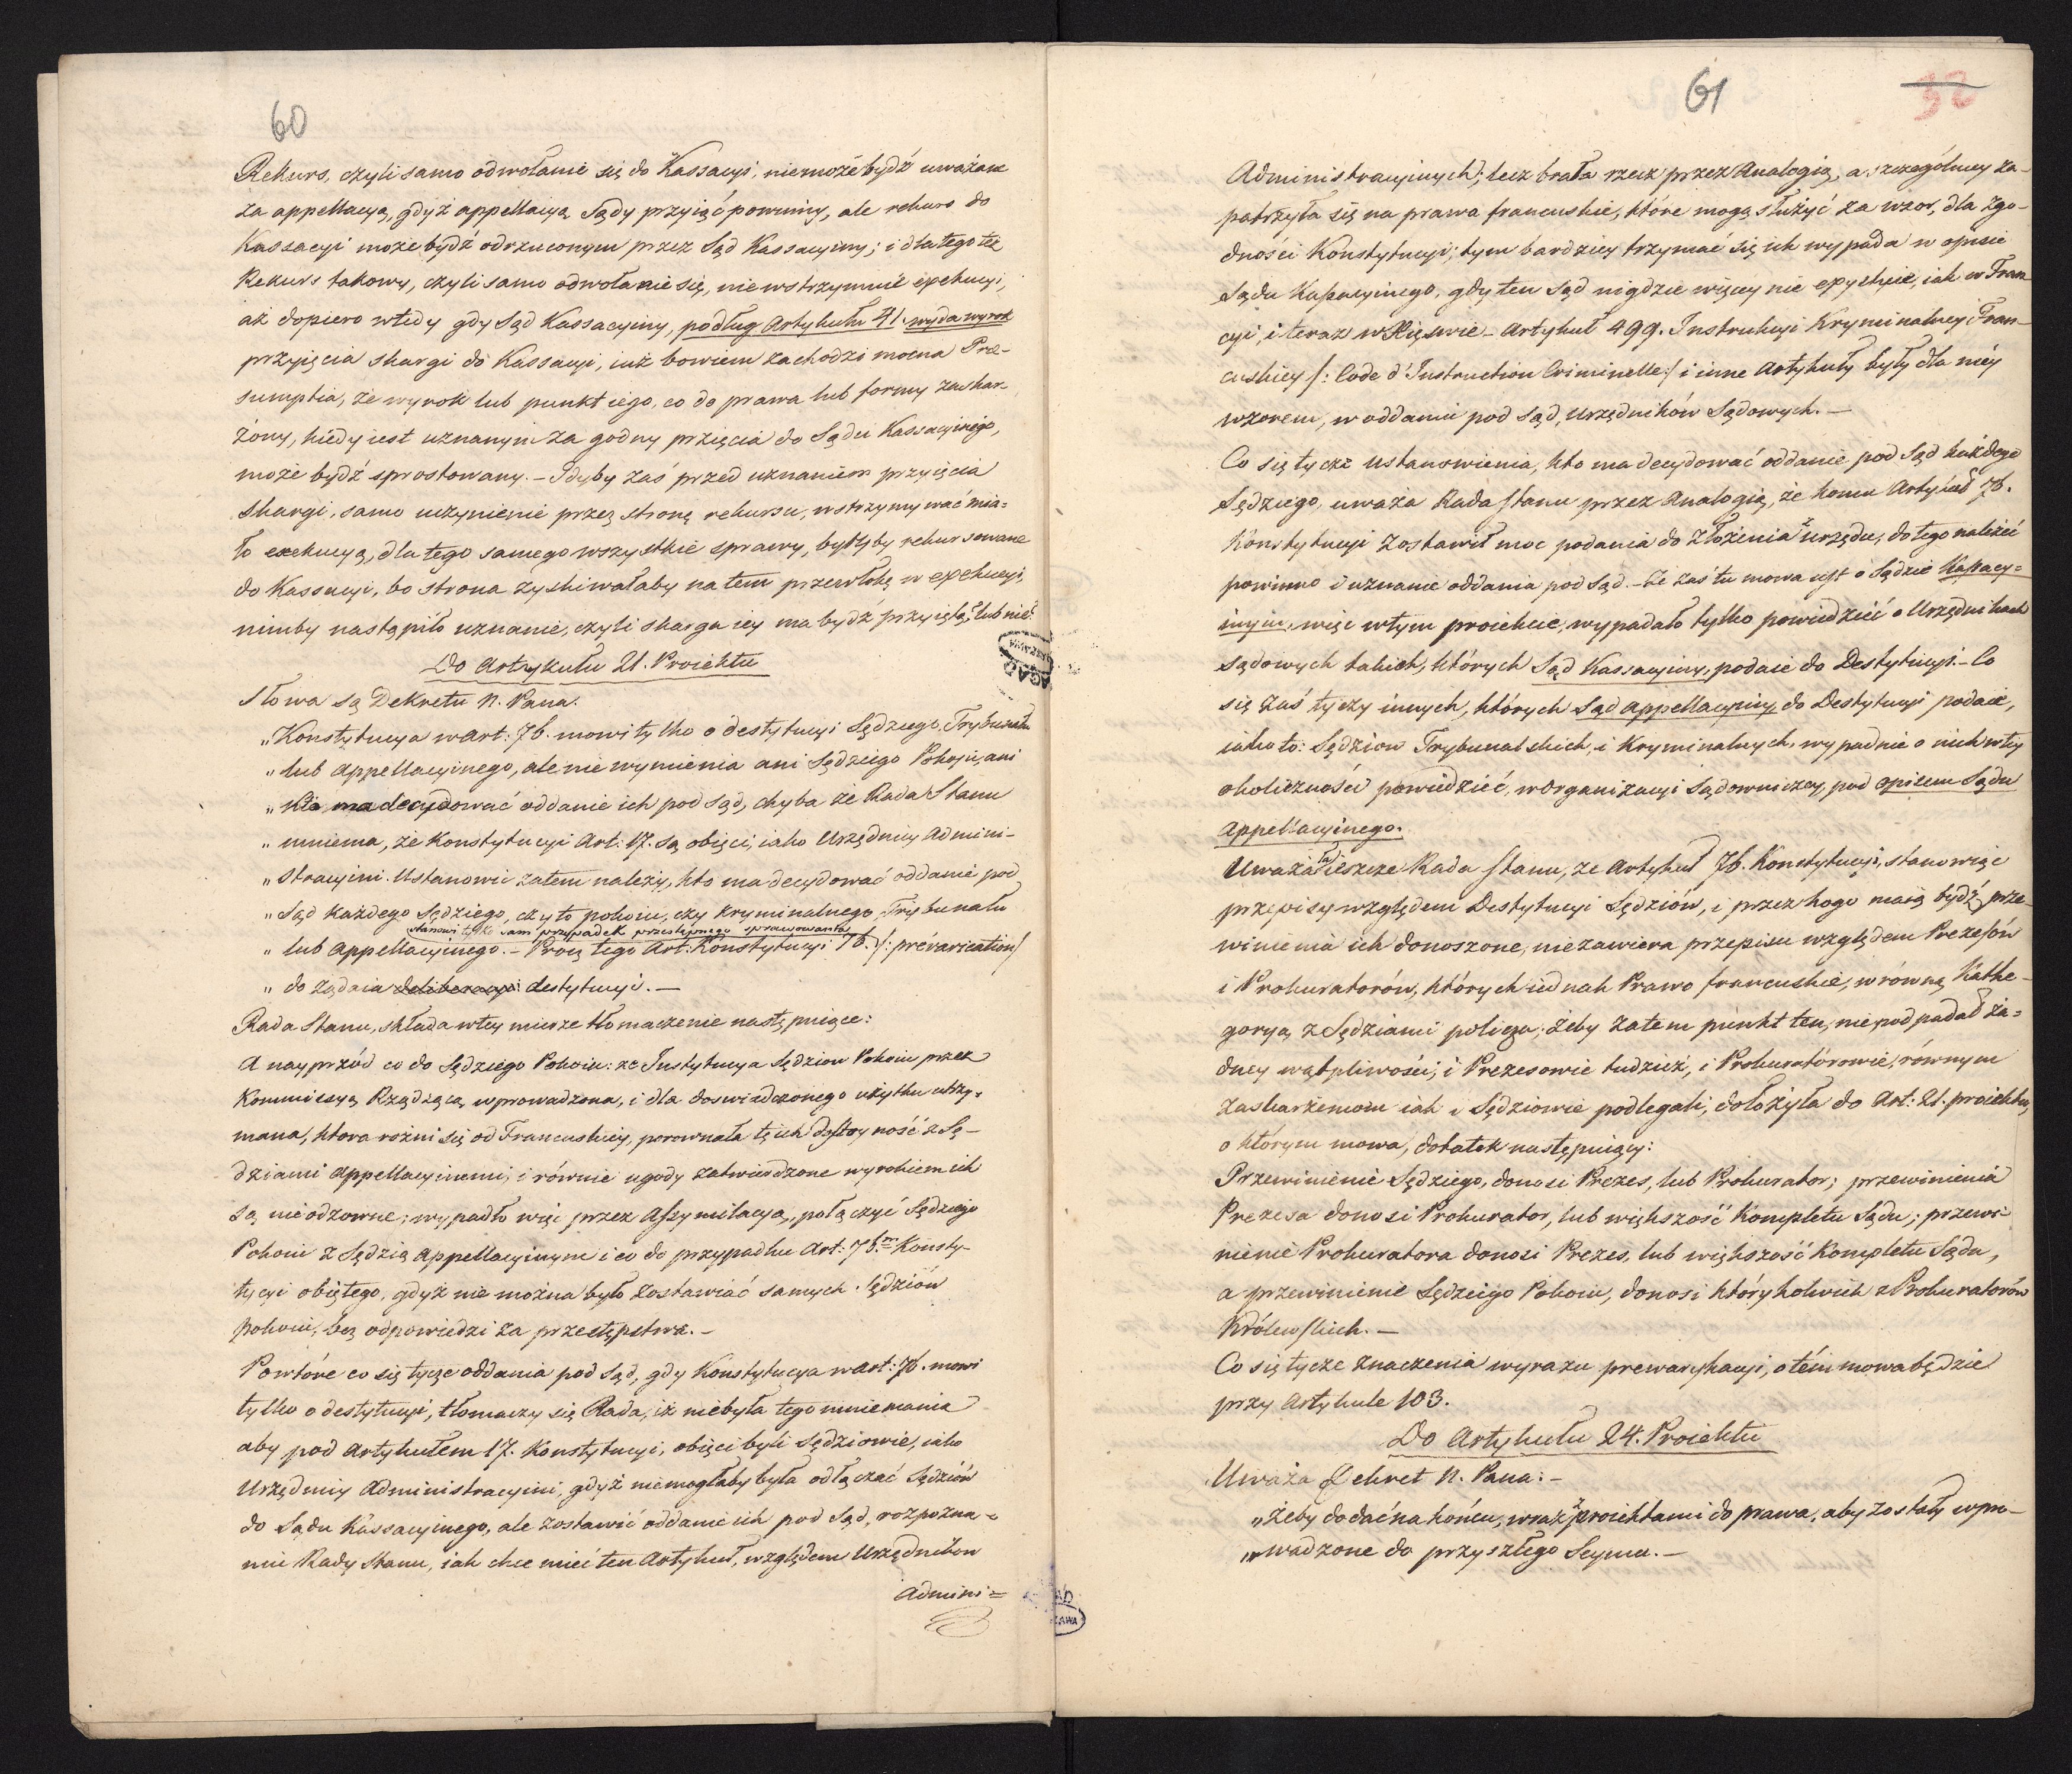 60
Rekurs, czyli samo odwołanie się do Kassacyi, niemoże bydź uważane
za appellacyą, gdyż appellacyą Sądy przyiąć powinny, ale rekurs do
Kassacyi może bydź odrzuconym przez Sąd Kassacyiny; i dla tego też
Rekurs takowy, czyli samo odwołanie się, nie wstrzymuie exekucyi,
aż dopiero wtedy gdy Sąd Kassacyiny, podług Artykułu 41. wyda wyrok
przyięcia skargi do Kassacyi, iuż bowiem zachodzi mocna Pre-
sumptia, że wyrok lub punkt iego, co do prawa lub formy zaskar
żony, kiedy iest uznanym za godny przięcia do Sądu Kassacyinego,
może bydź sprostowany. – Gdyby zaś przed uznaniem przyięcia
Skargi, samo uczynienie przez stronę rekursu, wstrzymywać mia=
ło exekucyą, dla tego samego wszystkie sprawy, byłyby rekursowane
do Kassacyi, bo strona zyskiwałaby na tem przewłokę w exekucyi,
nimby nastąpiło uznanie, czyli skarga iey ma bydź przyiętą, lub nie?
Do Artykułu 21. Proiektu
Słowa są Dekretu N. Pana.
„Konstytucya w art: 76. mowi tylko o destytucyi Sędziego Trybunału
„lub Appellacyinego, ale nie wymienia ani Sędziego Pokoiu, ani
„kto ma decydować oddanie ich pod sąd, chyba że Rada Stanu
„mniema, że Konstytucyi Art: 17. są obięci, iako Urzędnicy Admini-
„stracyini. Ustanowić zatem należy, kto ma decydować oddanie pod
„Sąd każdego Sędziego, czy to pokoiu, czy Kryminalnego, Trybunału
stanowi tylko sam przypadek przestępnego sprawowania
„lub Appellacyinego. – Procz tego Art: Konstytucyi 76. /: prévarication/
„do żądania deliberacyi destytucyi. —
Rada Stanu, składa w tey mierze tłomaczenie następuiące:
A nayprzód co do Sędziego Pokoiu: że Instytucya Sędziow Pokoiu przez
Kommissyą Rządzącą wprowadzona, i dla doswiadczonego użytku utrzy=
mana, ktora rożni się od Francuskiey, porownała tę ich dystoyność z Sę-
dziami Appellacyinemi, i równie ugody zatwierdzone wyrokiem ich
są nieodzowne; wypadło więc przez Assymilacyą, połączyć Sędziego
Pokoiu z Sędzią Appellacyinym i co do przypadku Art: 76m Konsty-
tycyi obiętego, gdyż nie można było zostawiać samych Sędziów
pokoiu, bez odpowiedzi za przestępstwa. –
Powtóre co się tycze oddania pod Sąd, gdy Konstytucya w art: 76. mowi
tylko o destytucyi, tłomaczy się Rada, iż niebyła tego mniemania
aby pod Artykułem 17. Konstytucyi, obięci byli Sędziowie, iako
Urzędnicy Administracyini, gdyż niemogłaby była odłączać Sędziów
do Sądu Kassacyinego, ale zostawić oddanie ich pod Sąd, rozpozna=
niu Rady Stanu, iak chce mieć ten Artykuł, względem Urzędników
Admini=
61
32
Administracyinych; lecz brała rzecz przez Analogią, a szczególniey za-
patrzyła się na prawa francuskie, które mogą służyć za wzor, dla zgo-
dności Konstytucyi; tym bardziey trzymać się ich wypada w opisie
Sądu Kassacyinego, gdy ten Sąd nigdzie więcey nie exystuie, iak w Fran
cyi i teraz w Xięswie – Artykuł 499. Instrukcyi Kryminalney Fran-
cuskiey /: Code d'Instruction Criminelle:/ i inne Artykuły były dla niéy
wzorem, w oddaniu pod Sąd, Urzędników Sądowych. —
Co się tycze ustanowienia, kto ma decydować oddanie pod Sąd każdego
Sędziego, uważa Rada Stanu przez Analogią, że komu Artykuł 76.
Konstytucyi zostawił moc podania do złożenia z urzędu, do tego należeć
powinno i uznanie oddania pod Sąd. – Że zaś tu mowa iest o Sądzie Kassacy=
inym, więc w tym proiekcie, wypadało tylko powiedzieć o Urzędnikach
Sądowych takich, których Sąd Kassacyiny, podaie do Destytucyi. – Co
się zaś tyczy innych, których Sąd Appellacyiny do Destytucyi podaie,
iako to: Sędziow Trybunalskich, i Kryminalnych, wypadnie o nich w tey
okoliczności powiedzieć, w Organizacyi Sądowniczey, pod opisem Sądu
Appellacyinego.
Uważała ieszcze Rada Stanu, że Artykuł 76. Konstytucyi, stanowiąc
przepisy względem Destytucyi Sędziów, i przez kogo maią bydź prze-
winienia ich donoszone, niezawiera przepisu względem Prezesów
i Prokuratorów, których iednak Prawo francuskie, w równą Kathe-
goryą z Sędziami policza; żeby zatem punkt ten, niepodpadał ża=
dney wątpliwości, i Prezesowie tudzież, i Prokuratorowie, równym
zaskarżeniom iak i Sędziowie podlegali, dołożyła do Art: 21. proiektu,
o którym mowa, dodatek następuiący:
Przewinienie Sędziego, donosi Prezes, lub Prokurator; przewinienia
Prezesa donosi Prokurator, lub większość Kompletu Sądu; przewi-
nienie Prokuratora donosi Prezes, lub większość Kompletu Sądu,
a przewinienie Sędziego Pokoiu, donosi którykolwiek z Prokuratorów
Królewskich. —
Co się tycze znaczenia wyrazu prewarykacyi, o tém mowa będzie
przy Artykule 103.
Do Artykułu 24. Proiektu
Uważa Dekret N. Pana: –
„żeby dodać na końcu, wraz z proiektami do prawa, aby zostały wpro-
„wadzone do przyszłego Seymu. —